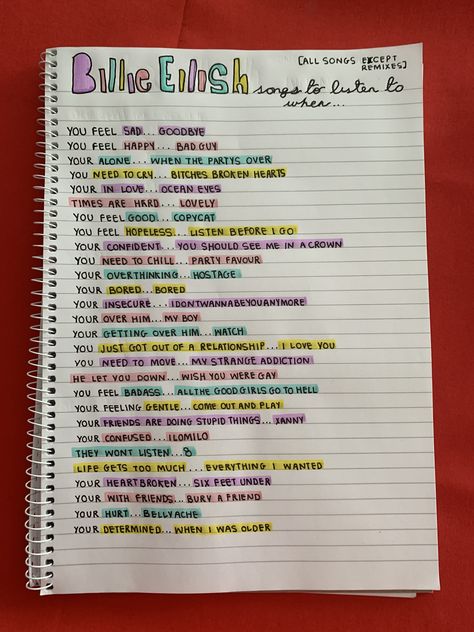 Billie Eilish songs to listen to
when...
[ALL SONGS EXCEPT
REMIXES]
YOU FEEL SAD... GOODBYE
YOU FEEL HAPPY... BAD GUY
YOUR ALONE... WHEN THE PARTYS OVER
YOU NEED TO CRY... BITCHES BROKEN HEARTS
YOUR IN LOVE... OCEAN EYES
TIMES ARE HARD... LOVELY
YOU FEEL GOOD... COPYCAT
YOU FEEL HOPELESS... LISTEN BEFORE I GO
YOUR CONFIDENT... YOU SHOULD SEE ME IN A CROWN
YOU NEED TO CHILL... PARTY FAVOUR
YOUR OVERTHINKING... HOSTAGE
YOUR BORED... BORED
YOUR INSECURE... IDONTWANNABEYOUANYMORE
YOUR OVER HIM... MY BOY
YOUR GETTING OVER HIM... WATCH
YOU JUST GOT OUT OF A RELATIONSHIP... I LOVE YOU
YOU NEED TO MOVE... MY STRANGE ADDICTION
HE LET YOU DOWN... WISH YOU WERE GAY
YOU FEEL BADASS... ALL THE GOOD GIRLS GO TO HELL
YOUR FEELING GENTLE... COME OUT AND PLAY
YOUR FRIENDS ARE DOING STUPID THINGS... XANNY
YOUR CONFUSED... ILOMILO
THEY WONT LISTEN...8
LIFE GETS TOO MUCH... EVERYTHING I WANTED
YOUR HEARTBROKEN... SIX FEET UNDER
YOUR WITH FRIENDS... BURY A FRIEND
YOUR HURT... BELLYACHE
YOUR DETERMINED... WHEN I WAS OLDER